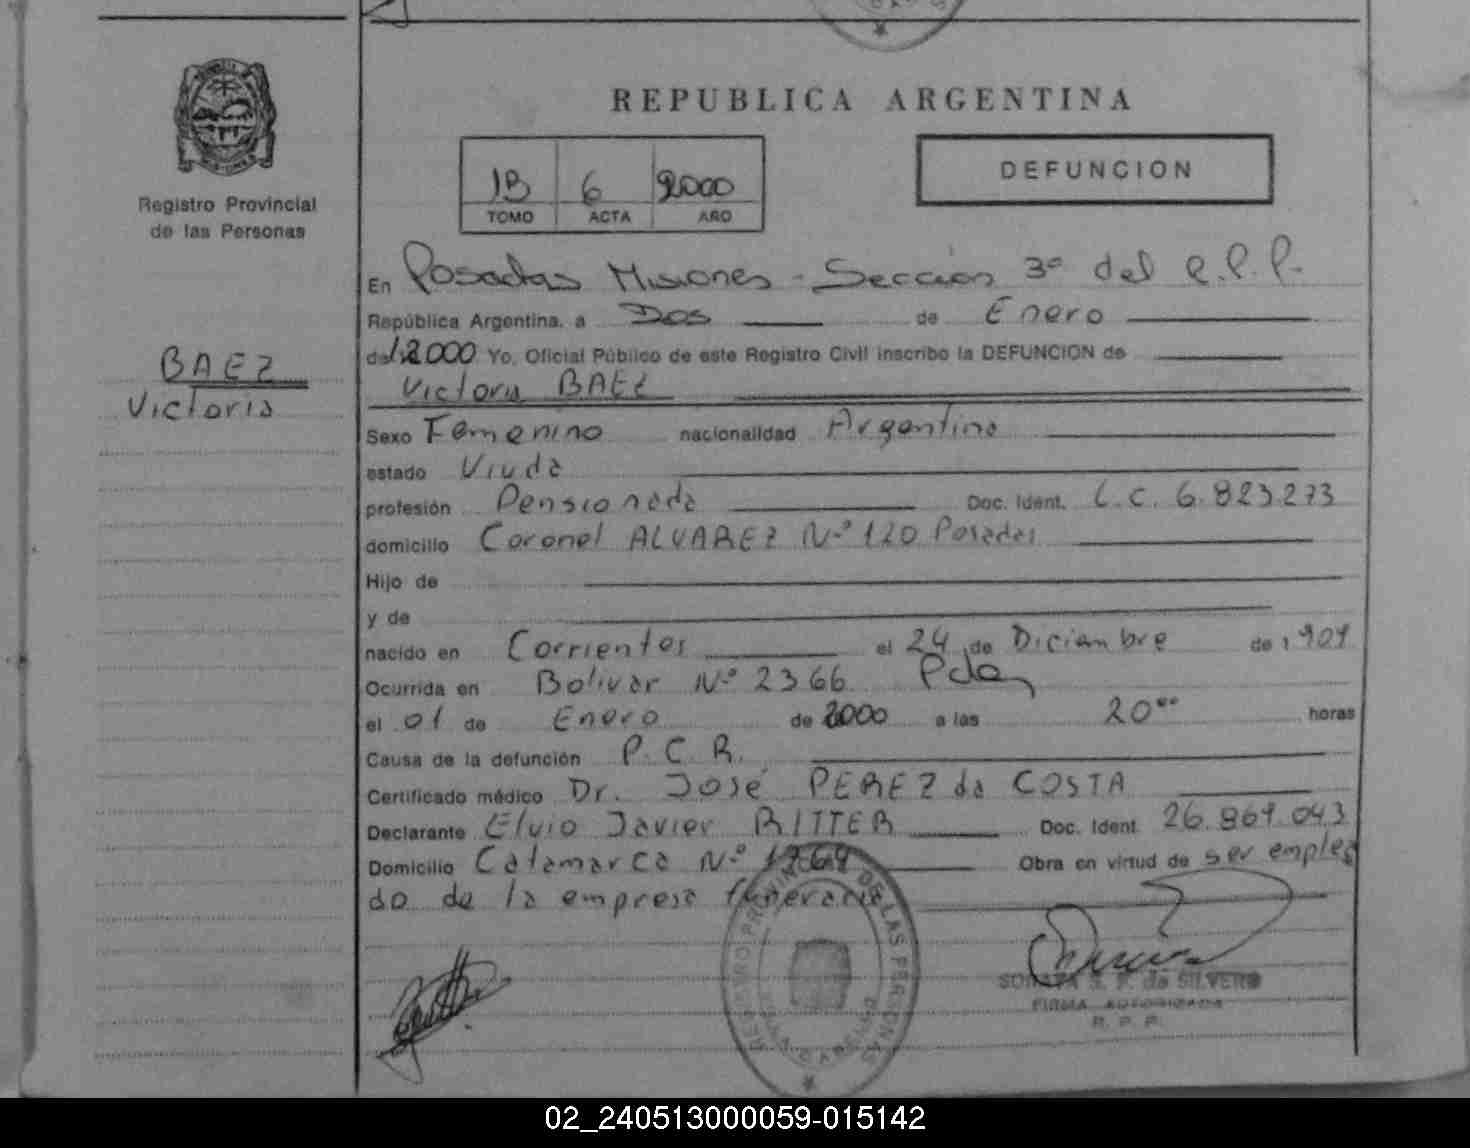 REPUBLICA ARGENTINA
Registro Provincial
de las Personas
1B 6 2000
TOMO ACTA AÑO
DEFUNCION
BAEZ
Victoria
En Posadas Misiones - Sección 3ª del R.P.P.
República Argentina, a Dos de Enero
de 2000 Yo, Oficial Público de este Registro Civil inscribo la DEFUNCION de
Victoria BAEZ
Sexo Femenino nacionalidad Argentina
estado Viuda
profesión Pensionada Doc. Ident. L.C. 6.823.273
domicilio Coronel ALVAREZ N.º 120 Posadas
Hijo de
y de
nacido en Corrientes el 24 de Diciembre de 1909
Ocurrida en Bolivar N.º 2366 Pdas
el 01 de Enero de 2000 a las 20ºº horas
Causa de la defunción P.C.R.
Certificado médico Dr. José PEREZ da COSTA
Declarante Elvio Javier RITTER Doc. Ident. 26.869.043
Domicilio Catamarca N.º Obra en virtud de ser emplea
do de la empresa funeraria
REGISTRO PROVINCIAL DE LAS PERSONAS
S. F. de SILVERO
FIRMA AUTORIZADA
R. P. P.
02_240513000059-015142